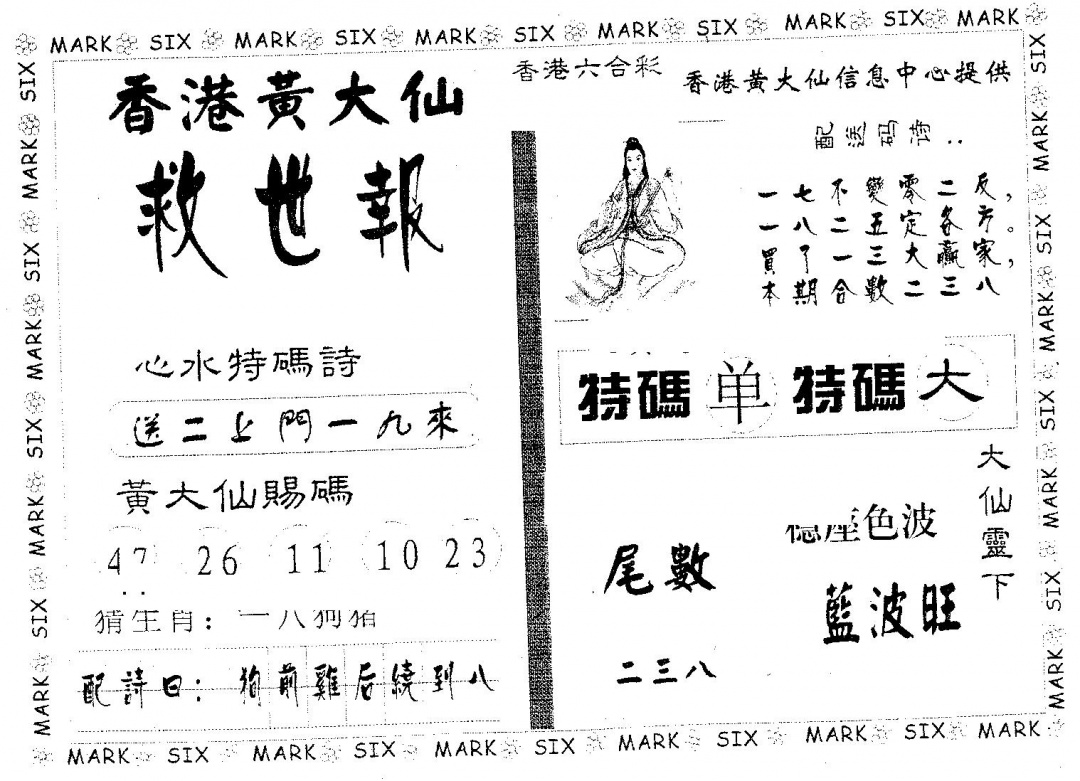 MARK SIX MARK SIX MARK SIX MARK SIX MARK SIX MARK
香港黃大仙
救世報
心水特碼詩
送二上門一九來
黃大仙賜碼
47 26 11 10 23
猜生肖：一八狗猪
配詩曰：狗前雞后繞到八
香港六合彩
香港黃大仙信息中心提供
配送码诗：
一七不變零二反，
一八二五定各方。
買了一三大贏家，
本期合數二三八
特碼 单 特碼 大
大仙靈下
色波
藍波旺
尾數
二三八
SIX MARK SIX MARK SIX MARK SIX MARK
SIX MARK SIX MARK SIX MARK SIX MARK
MARK SIX MARK SIX MARK SIX MARK SIX MARK SIX MARK